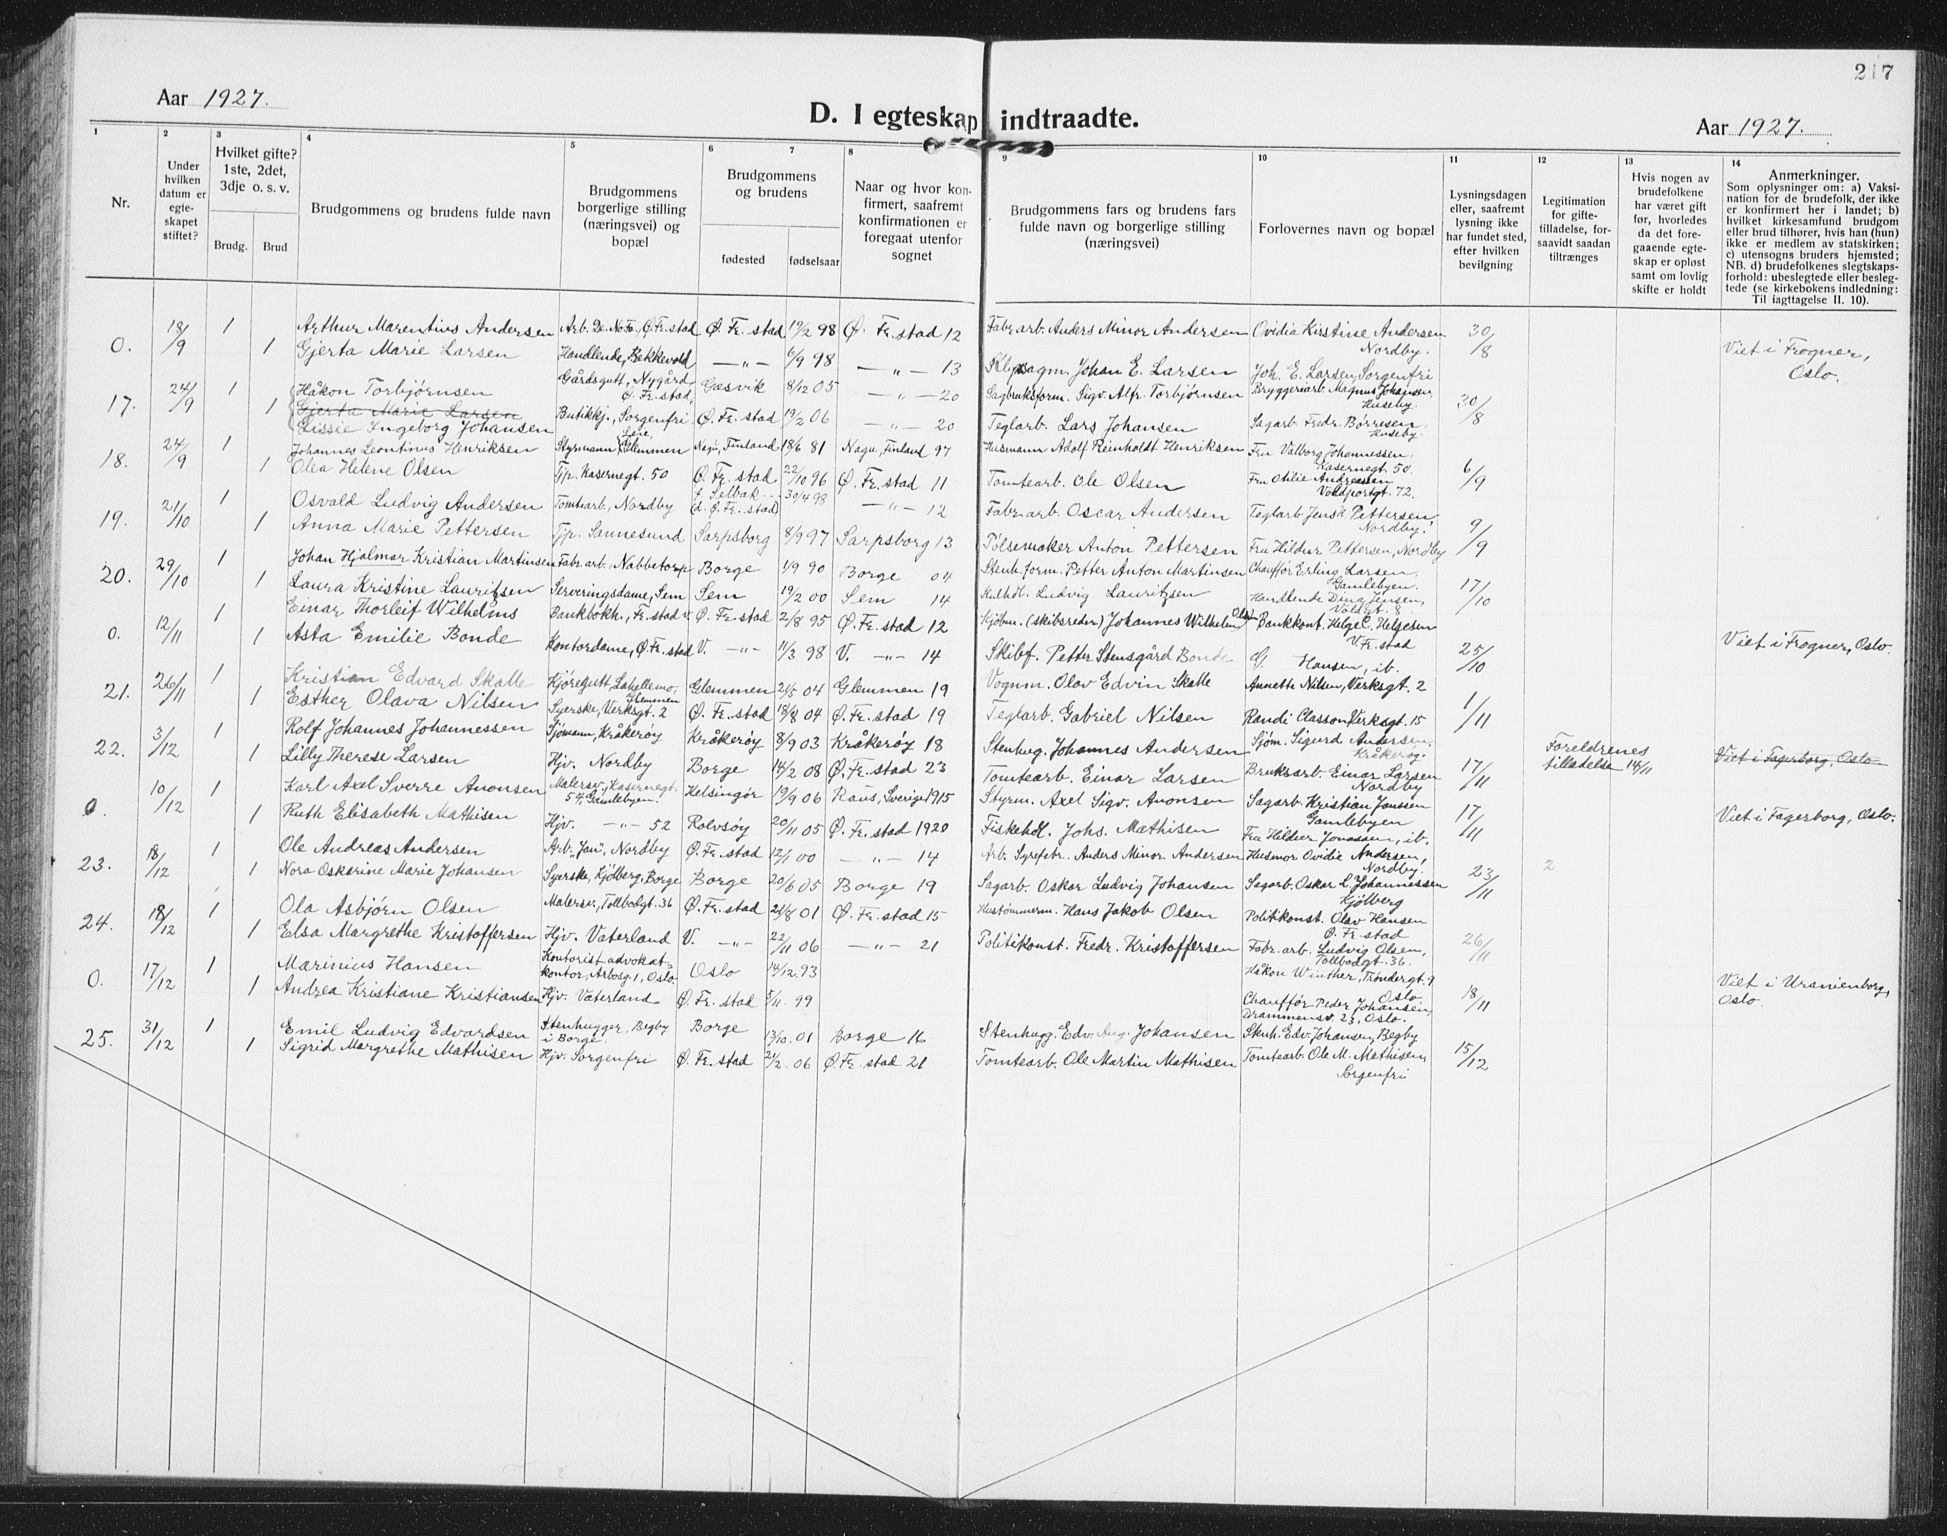 217
Aar 1927.
D. I egteskap indtraadte.
Aar 1927.
1
Nr.
2
Under hvilken datum er egte-skapet stiftet?
3
Hvilket gifte? 1ste, 2det, 3dje o. s. v.
Brudg.
Brud
4
Brudgommens og brudens fulde navn
5
Brudgommens borgerlige stilling (næringsvei) og bopæl
6
7
Brudgommens og brudens
fødested
fødselsaar
8
Naar og hvor kon-firmert, saafremt konfirmationen er foregaat utenfor sognet
9
Brudgommens fars og brudens fars fulde navn og borgerlige stilling (næringsvei)
10
Forlovernes navn og bopæl
11
Lysningsdagen eller, saafremt lysning ikke har fundet sted, efter hvilken bevilgning
12
Legitimation for gifte-tilladelse, for-saavidt saadan tiltrænges
13
Hvis nogen av brudefolkene har været gift før, hvorledes da det fore-gaaende egte-skap er opløst samt om lovlig skifte er holdt
14
Anmerkninger.
Som oplysninger om: a) Vaksi-nation for de brudefolk, der ikke er konfirmert her i landet; b) hvilket kirkesamfund brudgom eller brud tilhører, hvis han (hun) ikke er medlem av statskirken; c) utensogns bruders hjemsted; NB. d) brudefolkenes slegtskaps-forhold: ubeslegtede eller besleg-tede (se kirkebokens indledning: Til iagttagelse II. 10).
0. 18/9 1 Arthur Marentius Andersen Arb. De No. Fa., Ø. Fr.stad Ø. Fr. stad 19/2 98 Ø. Fr. stad 12 Fabr. arb. Anders Minor Andersen Ovidia Kirstine Andersen Nordby. 30/8
1 Gjerta Marie Larsen Handlende, Bekkevold —„— 6/9 98 —„— 13 Johan E. Larsen Joh. E. Larsen, Sorgenfri Viet i Frogner, Oslo.
17. 24/9 1 Håkon Torbjørnsen Gårdsgutt, Nygård Ø. Fr. stad Gåsvik 8/12 05 —„— 20 Sagbruksform. Sigv. Alfr. Torbjørnsen Bryggeriarb. Magnus Johansen, Huseby. 30/8
1 Gjerta Marie Larsen
Lissie Ingeborg Johansen Butikkj., Sorgenfri Ø. Fr. stad 19/2 06 —„— 20 Teglarb. Lars Johansen Sagarb. Fredr. Børresen, Huseby.
18. 24/9 1 Johannes Leontinus Henriksen Styrmann, Glemmen Nagu, Finland 18/6 81 Nagu, Finland 97 Husmann Adolf Reinholdt Henriksen Fru Valborg Johannessen, Kasernegt. 50. 6/9
1 Olea Helene Olsen Tjp. Kasernegt. 50 Ø. Fr. stad 22/10 96 Ø. Fr. stad 11 Tomtearb. Ole Olsen Fru Otilie Andreassen Voldportgt. 72.
19. 21/10 1 Osvald Ludvig Andersen Tomtearb., Nordby f. Selbak d. Ø. Fr. stad 30/4 98 —„— 12 Fabr. arb. Oscar Andersen Teglarb. Jens H. Pettersen, Nordby. 9/9
1 Anna Marie Pettersen Tjp. Sannesund Sarpsborg 8/9 97 Sarpsborg 13 Pølsemaker Anton Pettersen Fru Hildur Pettersen, Nordby
20. 29/10 1 Johan Hjalmar Kristian Martinsen Fabr. arb., Nabbetorp Borge 1/9 90 Borge 04 Stenh. form. Petter Anton Martinsen Chauffør Erling Larsen, Gamlebyen. 17/10
1 Laura Kristine Lauritsen Serveringsdame, Sem Sem 19/2 00 Sem 14 Kulhdl. Ludvig Lauritzsen Handlende Dina Jensen, Voldgt. 8.
0. 12/11 1 Einar Thorleif Wilhelms Bankbokh., Fr. stad Ø. Fr. stad 2/8 95 Ø. Fr. stad 12 Kjøbm. (skibsreder) Johannes Wilhelm Olsen Bankkont. Helge C. Helgesen V. Fr. stad 25/10
1 Asta Emilie Bonde Kontordame, Ø. Fr. stad V. —„— 11/3 98 V. —„— 14 Skibsf. Petter Stensgård Bonde G. Hansen, ib. Viet i Frogner, Oslo.
21. 26/11 1 Kristian Edvard Skatte Kjøregutt, Lahellemo, Glemmen Glemmen 21/5 04 Glemmen 19 Vognm. Olav Edvin Skatte Annette Nilsen, Verksgt. 2 1/11
1 Esther Olava Nilsen Syerske, Verksgt. 2 Ø. Fr. stad 18/8 04 Ø. Fr. stad 19 Teglarb. Gabriel Nilsen Randi Classon, Verksgt. 15
22. 3/12 1 Rolf Johannes Johannessen Sjømann, Kråkerøy Kråkerøy 8/9 03 Kråkerøy 18 Stenhug. Johannes Andersen Sjøm. Sigurd Andersen, Kråkerøy. 17/11 Foreldrenes tilladelse 14/11 Viet i Fagerborg, Oslo
1 Lilly Therese Larsen Hjv. Nordby Borge 14/2 08 Ø. Fr. stad 23 Tomtearb. Einar Larsen Bruksarb. Einar Larsen Nordby
0. 10/12 1 Karl Axel Sverre Anonsen Malersv., Kasernegt. 54, Gamlebyen. Helsingør 19/9 06 Raus, Sverige 1915 Styrm. Axel Sigv. Anonsen Sagarb. Kristian Jonssen Gamlebyen 17/11 Viet i Fagerborg, Oslo.
1 Ruth Elisabeth Mathisen Hjv. —„— 52 Rolvsøy 20/11 05 Ø. Fr. stad 1920 Fiskehdl. Johs. Mathisen Fru Hildur Jonassen, ib.
23. 18/12 1 Ole Andreas Andersen Arb. „Jan", Nordby Ø. Fr. stad 12/1 00 —„— 14 Arb. Syrefabr. Anders Minor Andersen Husmor Ovidie Andersen, Nordby. 23/11 2
1 Nora Oskarine Marie Johansen Syerske, Kjølberg, Borge Borge 20/6 05 Borge 19 Sagarb. Oskar Ludvig Johansen Sagarb. Oskar L. Johannessen Kjølberg
24. 18/12 1 Ola Asbjørn Olsen Malersv., Tollbodgt. 36 Ø. Fr. stad 21/8 01 Ø. Fr. stad 15 Hustømmerm. Hans Jakob Olsen Politikonst. Olav Hansen Ø. Fr. stad 26/11
1 Elsa Margrethe Kristoffersen Hjv. Vaterland V. —„— 22/11 06 —„— 21 Politikonst. Fredr. Kristoffersen Fabr. arb. Ludvig Olsen, Tollbodgt. 36.
0. 17/12 1 Marinius Hansen Kontorist advokat-kontor, Arbosg. 1, Oslo Oslo 14/12 93 Håkon Winther, Trondergt. 9 Oslo. 18/11 Viet i Uranienborg, Oslo.
1 Andrea Kristiane Kristiansen Hjv. Vaterland Ø. Fr. stad 5/11 99 Chauffør Peder Johansen, Drammensv. 23, Oslo.
25. 31/12 1 Emil Ludvig Edvardsen Stenhugger, Begby i Borge Borge 13/10 01 Borge 16 Stenhugg. Edv. Aug. Johansen Stenh. Edv. Johansen, Begby 15/12
1 Sigrid Margrethe Mathisen Hjv. Sorgenfri Ø. Fr. stad 24/2 06 Ø. Fr. stad 21 Tomtearb. Ole Martin Mathisen Tomtearb. Ole M. Mathisen, Sorgenfri